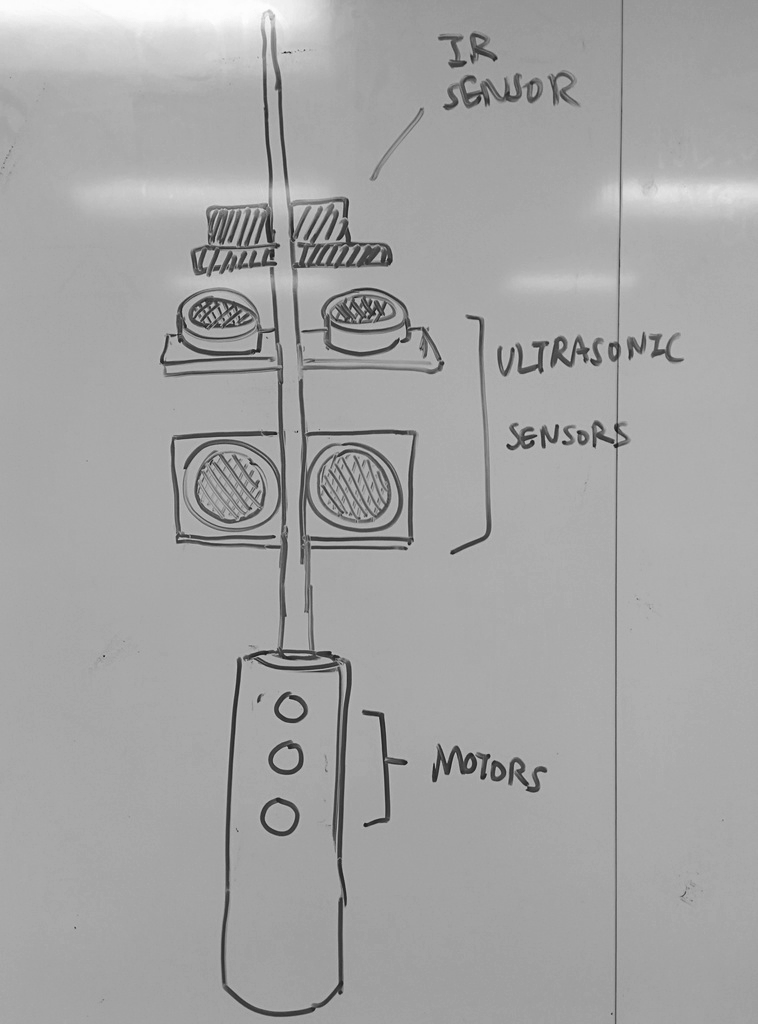 IR
SENSOR
ULTRASONIC
SENSORS
MOTORS